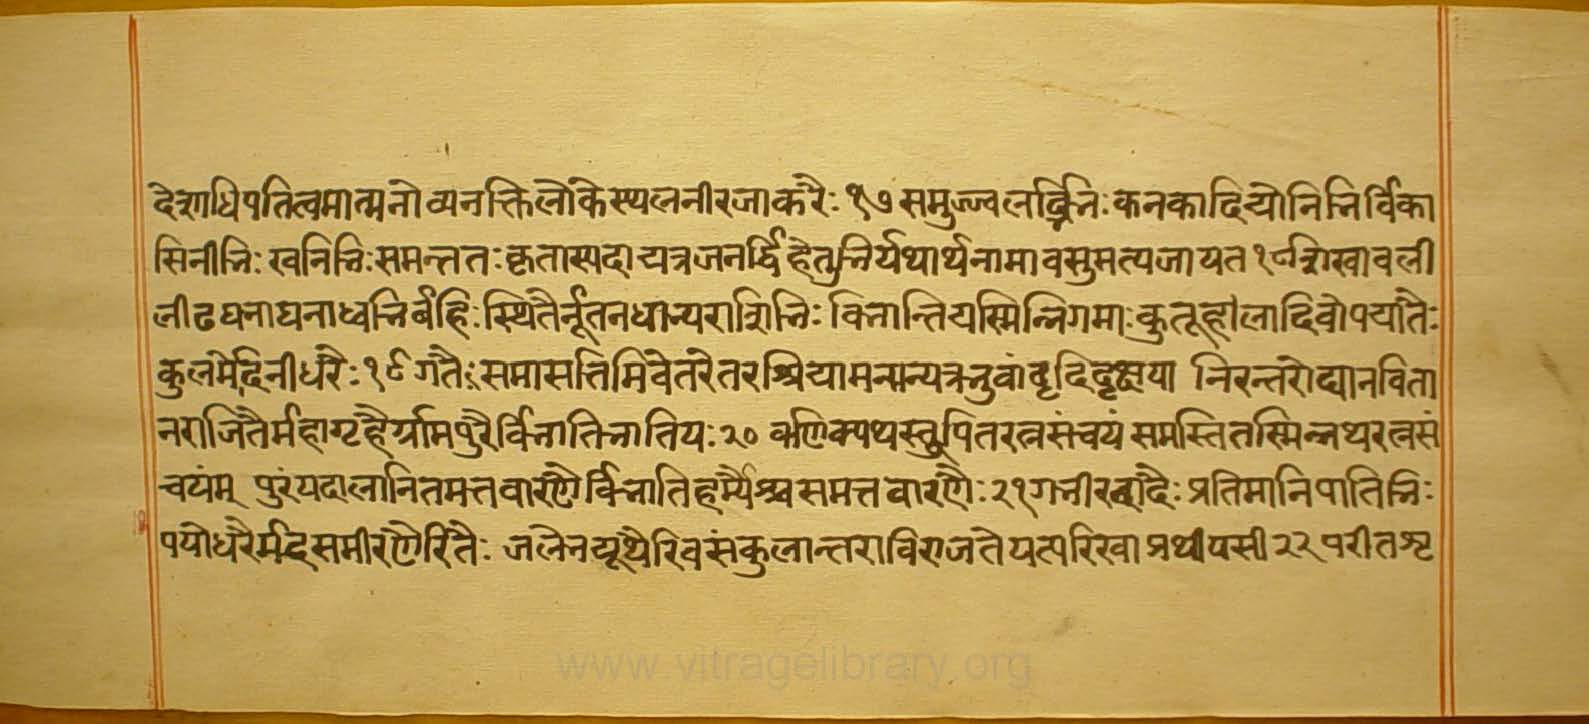 देशाधिपतित्वमात्मनो व्यनक्ति लोके स्थलनीरजाकरैः १७ समुज्ज्वलद्भिः कनकादियोनिभिर्विका
सिनीभिः खनिभिः समन्ततः कृतास्पदा यत्र जनर्द्धिहेतुभिर्यथार्थनामा वसुमत्यजायत १८ शिखावली
लीढघनाघनाध्वभिर्बहिः स्थितैर्नूतनधान्यराशिभिः विभान्ति यस्मिन्निगमाः कुतूहलादिवोपयातैः
कुलमेदिनीधरैः १९ गतैः समासत्तिमिवेतरेतरश्रियामनन्यत्रभुवां दिदृक्षया निरन्तरोद्यानविता
नराजितैर्महागृहैर्ग्रामपुरैर्विभाति यः २० वणिक्पथस्तूपितरत्नसंचयं समस्ति तस्मिन्नथ रत्नसं
चयम् पुरं यदालानितमत्तवारणैर्विभाति हर्म्यैश्च समत्तवारणैः २१ गभीरनादैः प्रतिमानिपातिभिः
पयोधरैर्मन्दसमीरणेरितैः जलेभयूथैरिव संकुलान्तरा विराजते यत्परिखा प्रथीयसी २२ परीतशृ
www.vitragelibrary.org